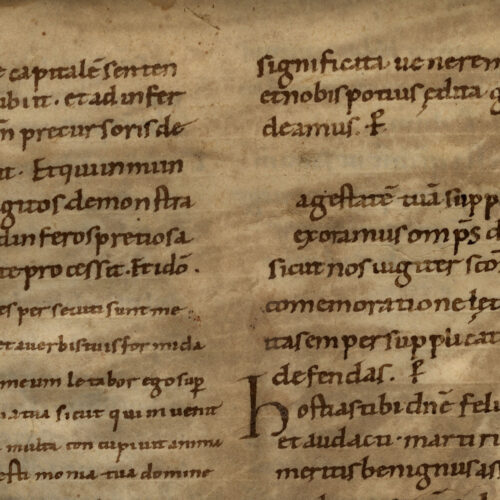 capitalē senten
ibi it. et ad infer
pretursoris de
Et qui in mun
demonstra
d inferos pretiosa
te processit. Et idō.
persecuti sunt me
et a verbis tuis formida
meum letabor ego sup
sicut qui invenit
multa concupivit anima
testimonia tua domine
significata venerem
et nobis potius ędita
deamus. P̄
agestatē tuā supp
exoramus omp̄s d
sicut nos iugiter
comemoratione lęt
ita semper supplicat
defendas. P̄
hostias tibi dn̄e feli
et audacti martiri
meritis benignus as